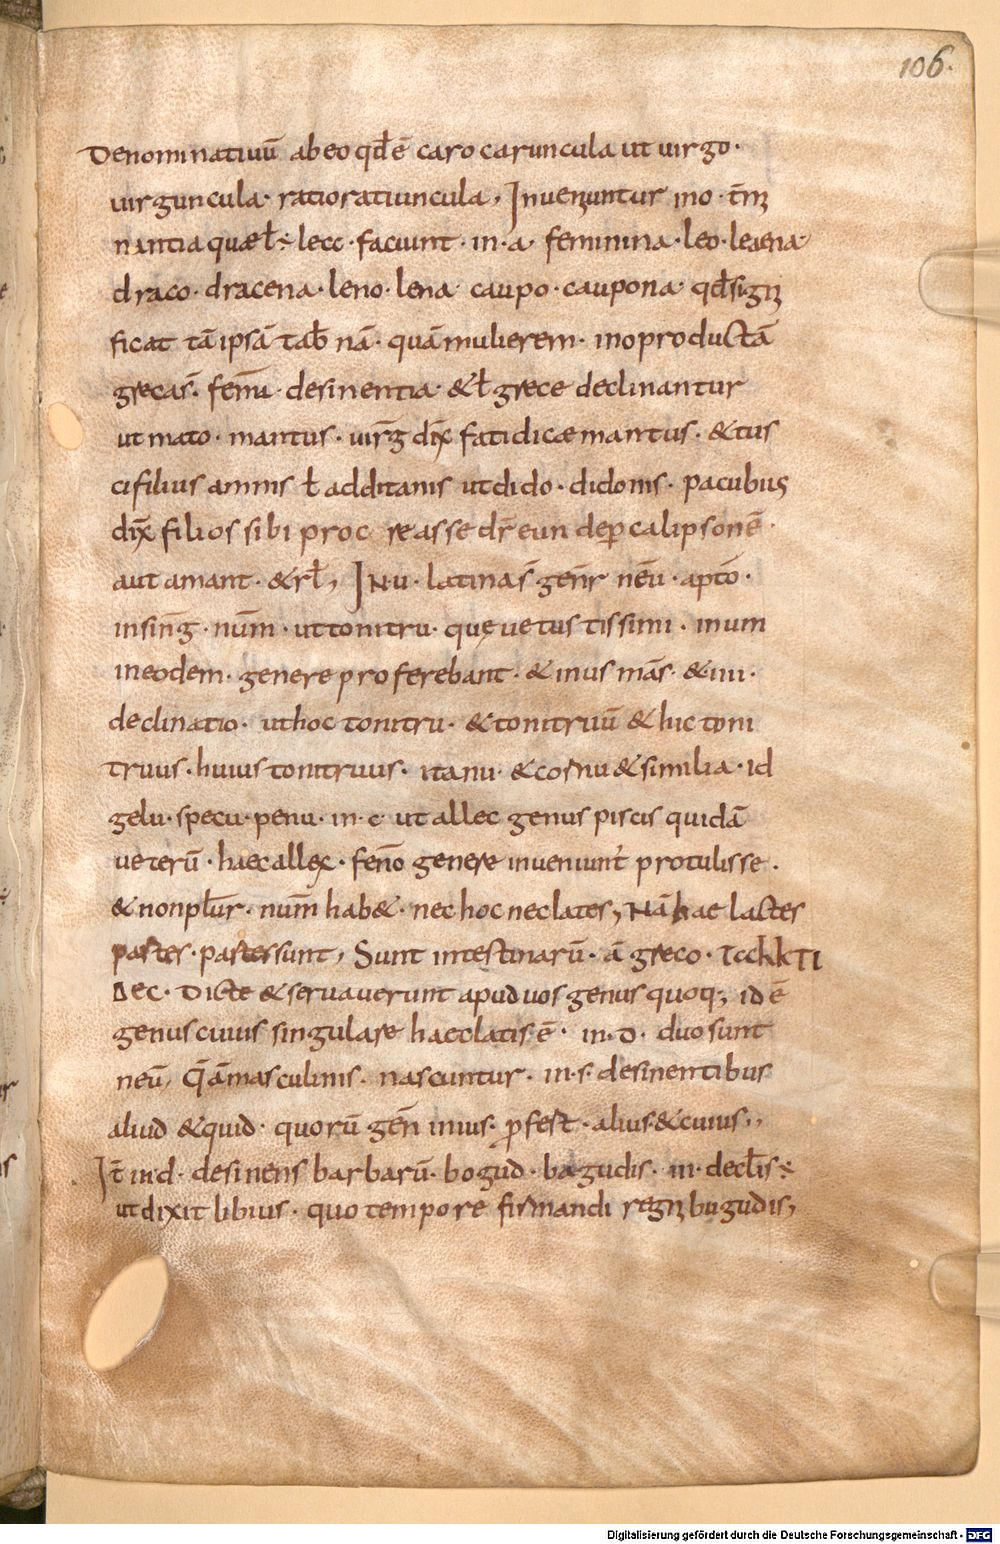 106.
Denominatiuū abeo qđē caro caruncula ut uirgo·
uirguncula· ratio ratiuncula, Inueniuntur ino· t̄mi
nantia quæ lecc· faciunt· in· a· feminina· leo· leaena·
draco· dracena· leno· lena· caupo· caupona· qđsigni
ficat tā ipsā tab̄nā· quā mulierem· ino productā
grecas̄· femī· desinentia· &ł grece declinantur
ut mato· mantus· uirḡ dix̄ fatidicæ mantus· &tus
ci filius amnis ł additanis ut dido· didonis· pacubius
dix̄ filios sibi proc re asse dr̄ eun deꝑ calipsonē·
aut amant· &rł, IN·u· latinas̄ gen̄r nēu· aptō·
insinḡ· nūm· ut tonitru· quę uetustissimi· inum
ineodem· genere proferebant· & inus mās· & iiii·
declinatio· ut hoc tonitru· & tonitruū & hic toni
truus· huius tonitruus· ita nu· & cornu & similia· id
gelu· specu· penu· in· c· ut allec genus piscis quidā
ueterū· haec allex· fenō genere inueniunt̄ protulisse·
& non pl̄ur· nūm hab&· nec hoc neclates, Nā hae lactes
partes· partes sunt, Sunt intestinarū· ā greco·
Dicte & seruauerunt apud uos genus quoq; id ē
genus cuius singulare haec latis ē· in· D· duo sunt
neū, Q̄ ā masculinis· nascuntur· in· s· desinentibus
aliud & quid· quorū geñ inius· ꝓfest· alius & cuius,,
It̄ in d· desinens barbarū· bogud· bagudis· iii· decl̄is
ut dixit libius· quo tempore firmandi regni bugudis,
Digitalisierung gefördert durch die Deutsche Forschungsgemeinschaft · DFG